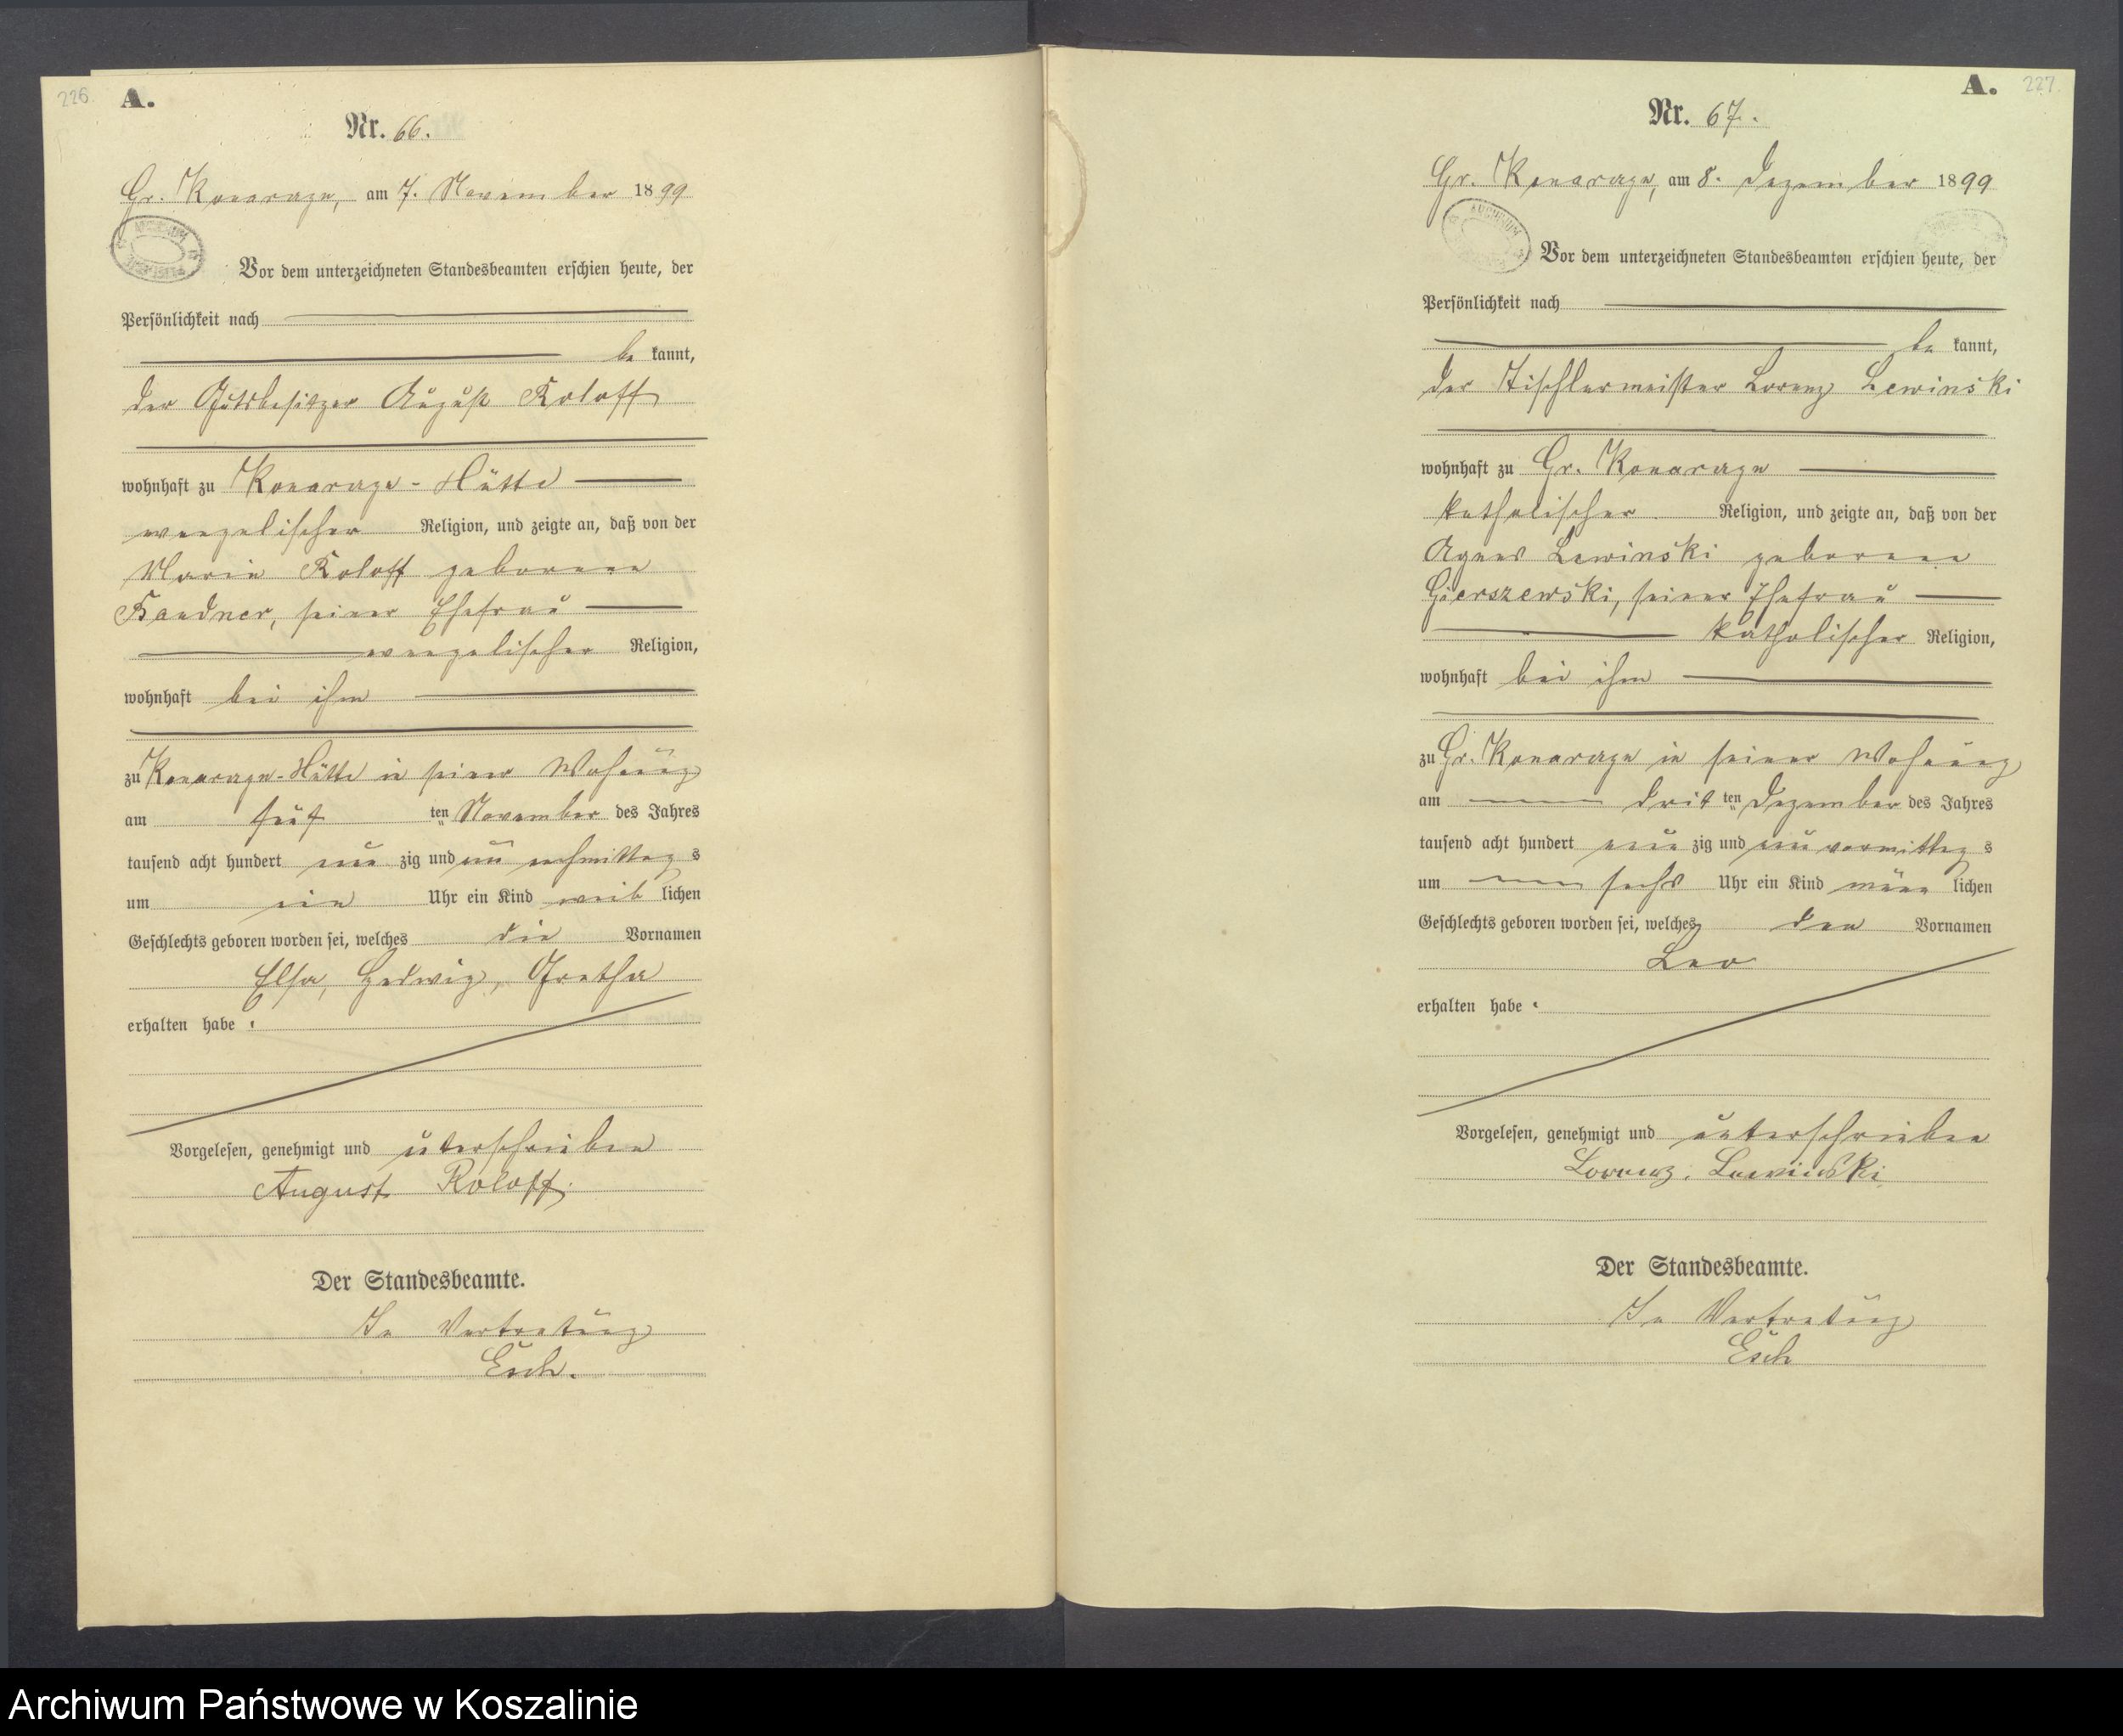 226.
A.
Nr. 66.
Gr. Konarczyn, am 7. November 1899
Vor dem unterzeichneten Standesbeamten erschien heute, der
Persönlichkeit nach
be kannt,
der Gutsbesitzer August Roloff
wohnhaft zu Konarczyn-Hütte
evangelischer Religion, und zeigte an, daß von der
Marie Roloff geborenen
seiner Ehefrau
evangelischer Religion,
wohnhaft bei ihm
zu Konarczyn-Hütte in seiner Wohnung
am fünf ten November des Jahres
tausend acht hundert neun zig und neun nachmittag s
um ein Uhr ein Kind weib lichen
Geschlechts geboren worden sei, welches die Vornamen
Elsa, Hedwig, Gretha
erhalten habe.
Vorgelesen, genehmigt und unterschrieben
August Roloff.
Der Standesbeamte.
In Vertretung
Esch.
A.
227.
Nr. 67.
Gr. Konarczyn, am 8. Dezember 1899
ARCHIWUM
Vor dem unterzeichneten Standesbeamten erschien heute, der
Persönlichkeit nach
be kannt,
der Tischlermeister Lorenz Lewinski
wohnhaft zu Gr. Konarczyn
katholischer Religion, und zeigte an, daß von der
Agnes Lewinski geborenen
Gierszewski, seiner Ehefrau
katholischer Religion,
wohnhaft bei ihm
zu Gr. Konarczyn in seiner Wohnung
am drit ten Dezember des Jahres
tausend acht hundert neun zig und neun vormittag s
um sechs Uhr ein Kind männ lichen
Geschlechts geboren worden sei, welches den Vornamen
Leo
erhalten habe.
Vorgelesen, genehmigt und unterschrieben
Lorenz. Lewinski
Der Standesbeamte.
In Vertretung
Esch
Archiwum Państwowe w Koszalinie